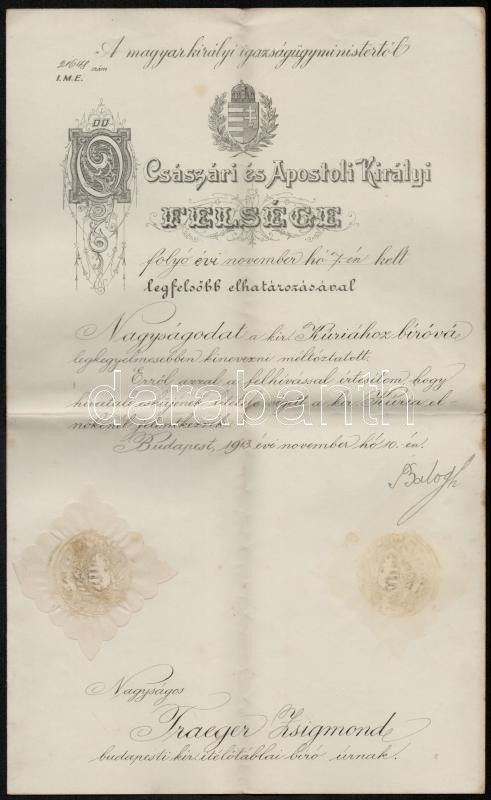 A magyar királyi igazságügyministertől
szám
I.M.E.
Ő Császári és Apostoli Királyi
FELSÉGE
folyó évi november hó 7-én kelt
legfelsőbb elhatározásával
Nagyságodat a kir. Kúriához bíróvá
legkegyelmesebben kinevezni méltóztatott.
Erről azzal a felhívással értesítem, hogy
hivatali esküjének letétele végett a kir. Kúria el-
nökénél jelentkezzék.
Budapest, 1913. évi november hó 10.-én.
Balogh
Nagyságos
Traeger Zsigmond
budapesti kir. ítélőtáblai bíró úrnak.
darabanth